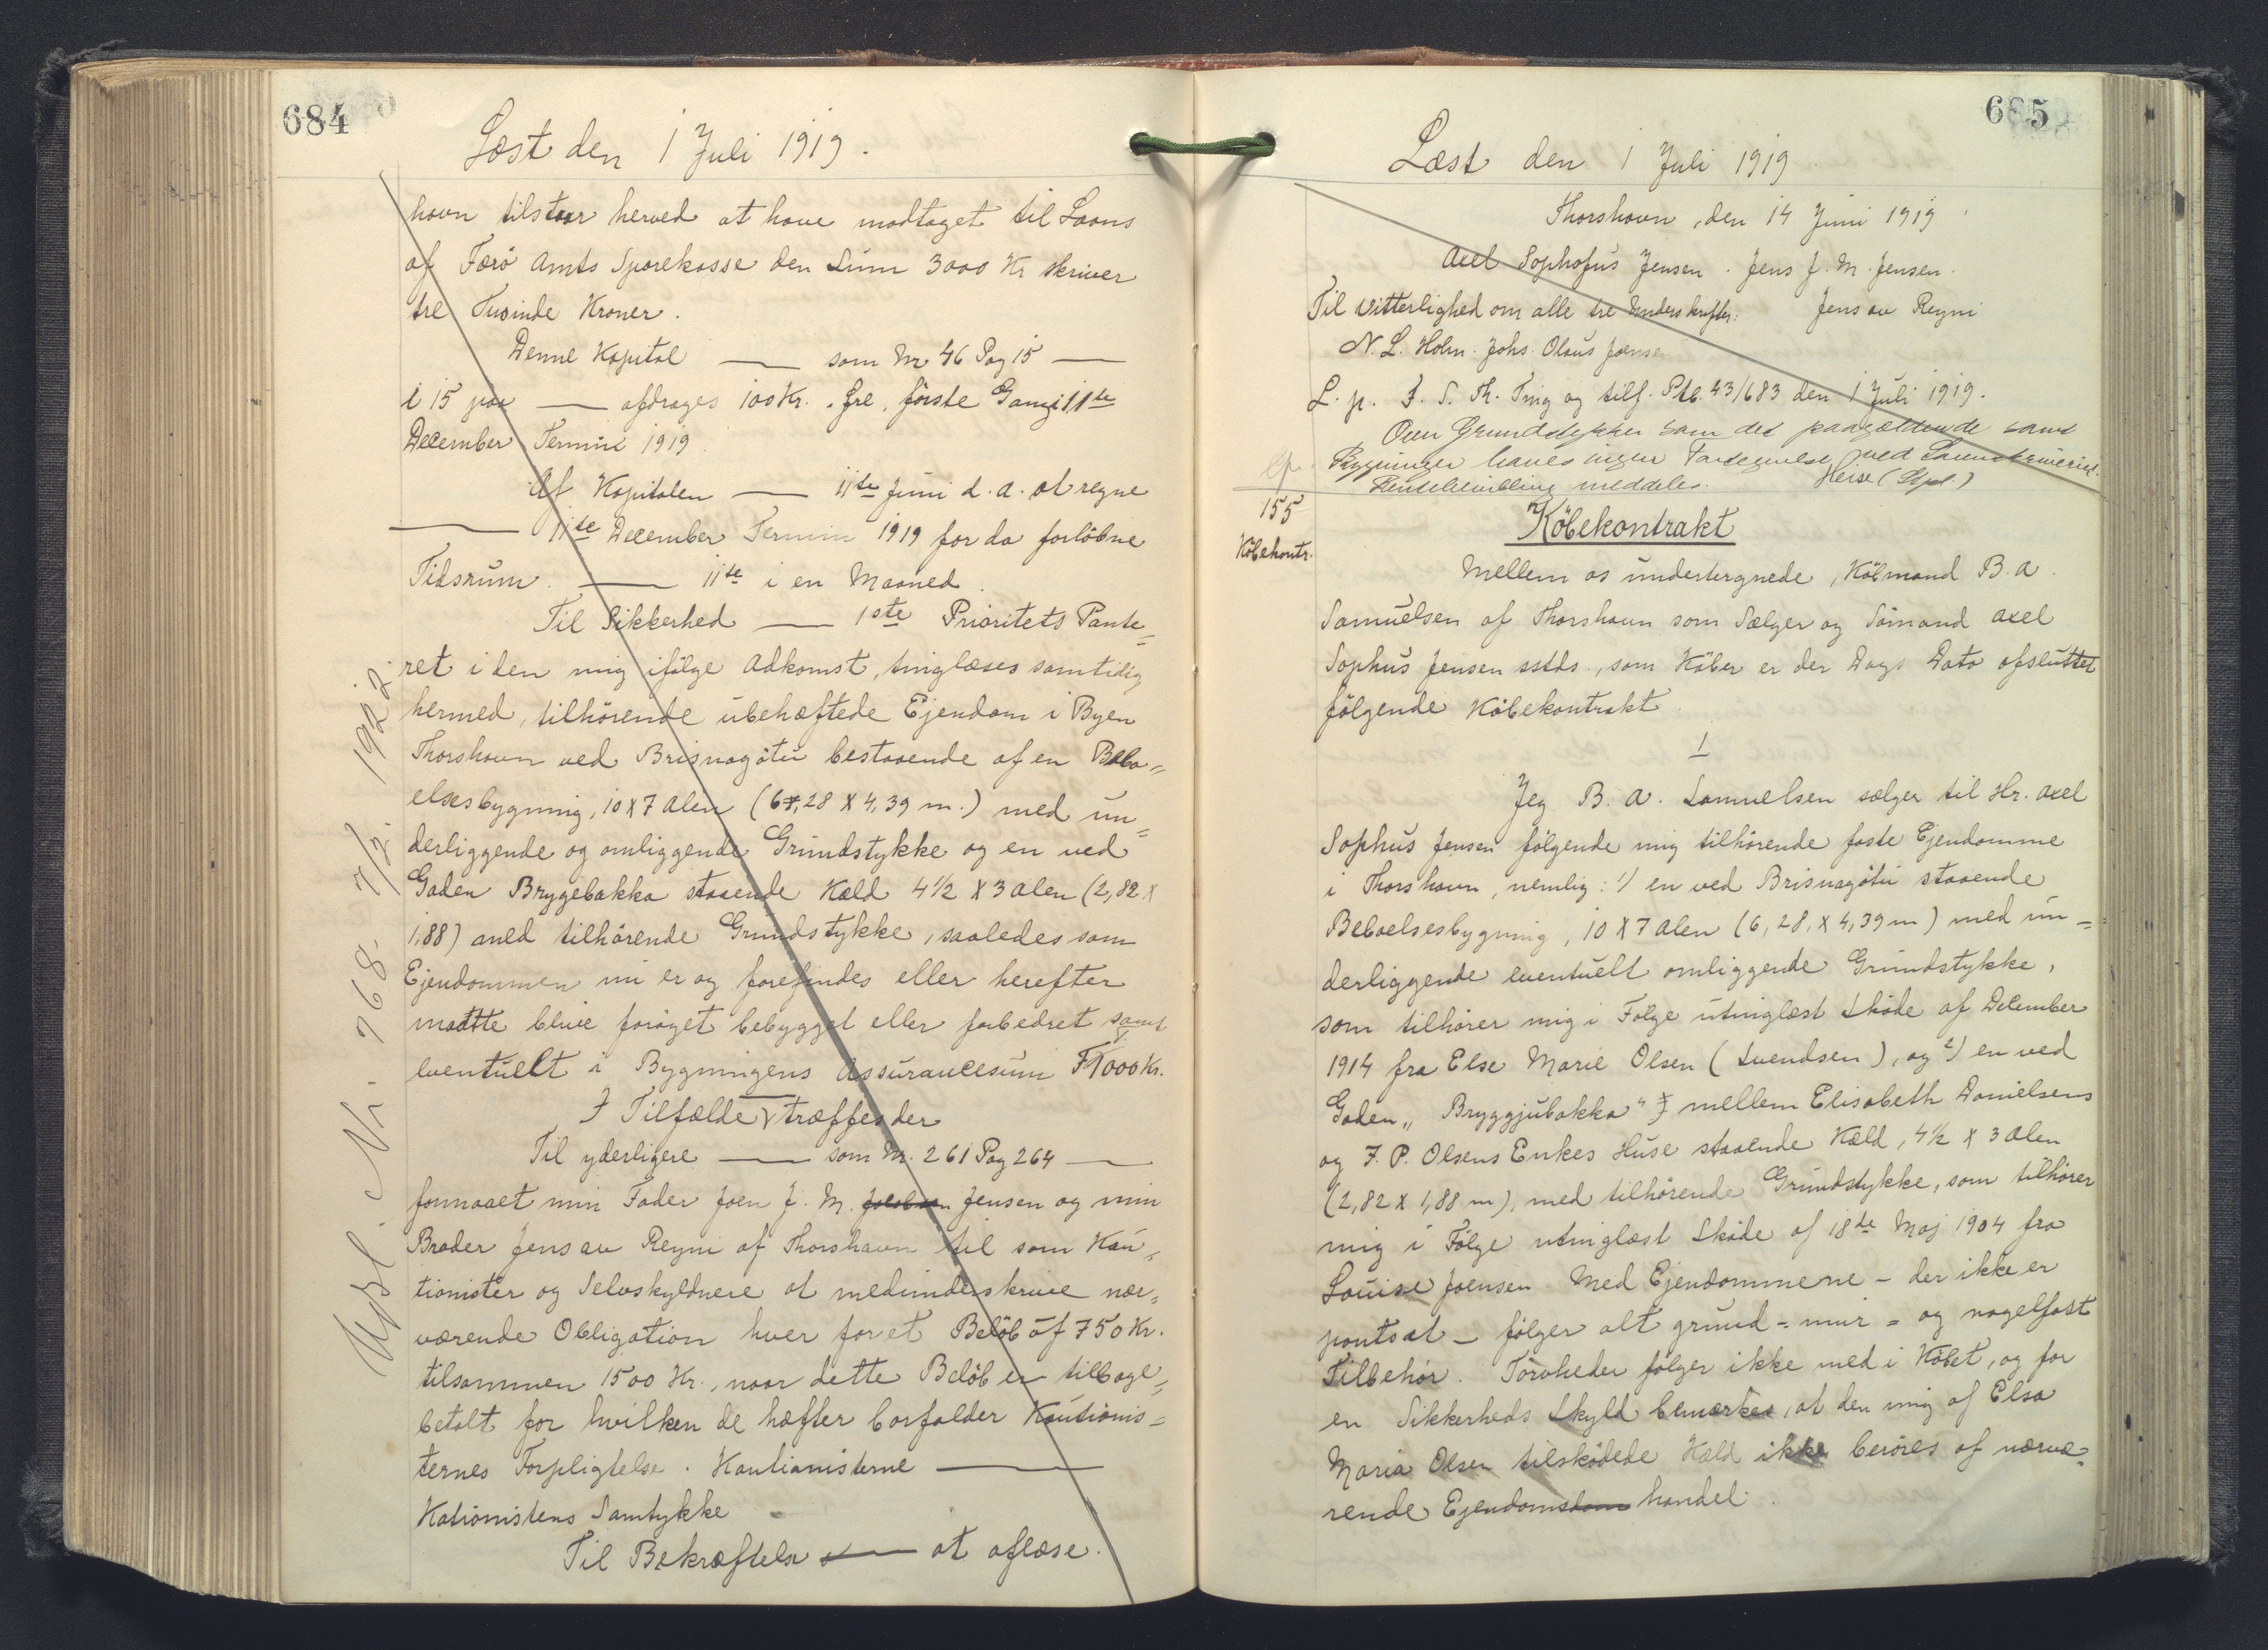 684
Læst den 1 Juli 1919.
havn tilstaar herved at have modtaget til Laans
af Færö Amts Sparekasse den Sum 3000 Kr skriver
tre Tusinde Kroner.
Denne Kapital — som Nr 46 Pag 15 —
i 15 paa — afdrages 100 Kr. . frc. förste Gang i 11te
December Termin 1919
Af Kapitalen — 11te Juni d. a. at regne
— 11te December Termin 1919 for da forlöbne
Tidsrum. — 11te i en Maaned.
Til Sikkerhed — 1ste Prioritets Pante=
ret i den mig ifölge Adkomst, tinglæses samtidig
hermed, tilhörende ubehæftede Ejendom i Byen
Thorshavn ved Brisnagötu bestaaende af en Bebo=
elsesbygning, 10 x 7 Alen (6,28 x 4,39 m.) med un=
derliggende og omliggende Grundstykke og en ved
Gaden Brygebakka staaende Kæld 4½ x 3 Alen (2,82 x
1,88) med tilhörende Grundstykke, saaledes som
Ejendommen nu er og forefindes eller herefter
maatte blive foröget bebygget eller forbedret samt
eventuelt i Bygningens Assurancesum 1000 Kr.
I Tilfælde træffes der
Til yderligere — som Nr. 261 Pag 264 —
formaaet min Fader Joen J. M. Jensen og min
Broder Jens av Reyni af Thorshavn til som Kau=
tionister og Selvskyldnere at medunderskrive nær=
værende Obligation hver for et Belöb af 750 Kr.
tilsammen 1500 Kr., naar dette Belöb er tilbage=
betalt for hvilken de hæfter borfalder Kautionis=
ternes Forpligtelse. Kautionisterne —
Kationistens Samtykke
Til Bekræftelse — at aflæse.
Udsl. Nr. 768. 7/2. 1922.
685
Læst den 1 Juli 1919
Thorshavn, den 14 Juni 1919
Axel Sophofus Jensen. Jens J. M. Jensen.
Til Vitterlighed om alle tre Underskrifter: Jens av Reyni
N. L. Holm. Johs. Olaus Joensen
L. p. F. S. Th. Ting og tilf. Ptb. 43/683 den 1 Juli 1919.
Over Grundstykker som det paagældende samt
Bygninger haves ingen Fortegnelse ved Sorenskriveriet.
meddeles. Heise (Gpl.)
155
Köbekontr.
Köbekontrakt
Mellem os undertegnede, Köbmand B. A.
Samuelsen af Thorshavn som Sælger og Sömand Axel
Sophus Jensen sstds., som Köber er der Dags Dato afsluttet
fölgende Köbekontrakt.
1
Jeg B. A. Samuelsen sælger til Hr. Axel
Sophus Jensen fölgende mig tilhörende faste Ejendomme
i Thorshavn, nemlig: 1) en ved Brisnagötu staaende
Beboelsesbygning, 10 x 7 Alen (6,28, x 4,39 m) med un=
derliggende eventuelt omliggende Grundstykke,
som tilhörer mig i Fölge utinglæst Sköde af December
1914 fra Else Marie Olsen (Svendsen), og 2) en ved
Gaden „ Bryggjubakka " mellem Elisabeth Danielsens
og J. P. Olsens Enkes Huse staaende Kæld, 4½ x 3 Alen
(2,82 x 1,88 m), med tilhörende Grundstykke, som tilhörer
mig i Fölge utinglæst Sköde af 18de Maj 1904 fra
Louise Joensen. Med Ejendommene - der ikke er
pantsat - fölger alt grund= mur= og nagelfast
Tilbehör. Törvheder fölger ikke med i Köbet, og for
en Sikkerheds Skyld bemærkes, at den mig af Elsa
Maria Olsen tilsködede Kæld ikke beröres af nærvæ=
rende Ejendomsdom handel.